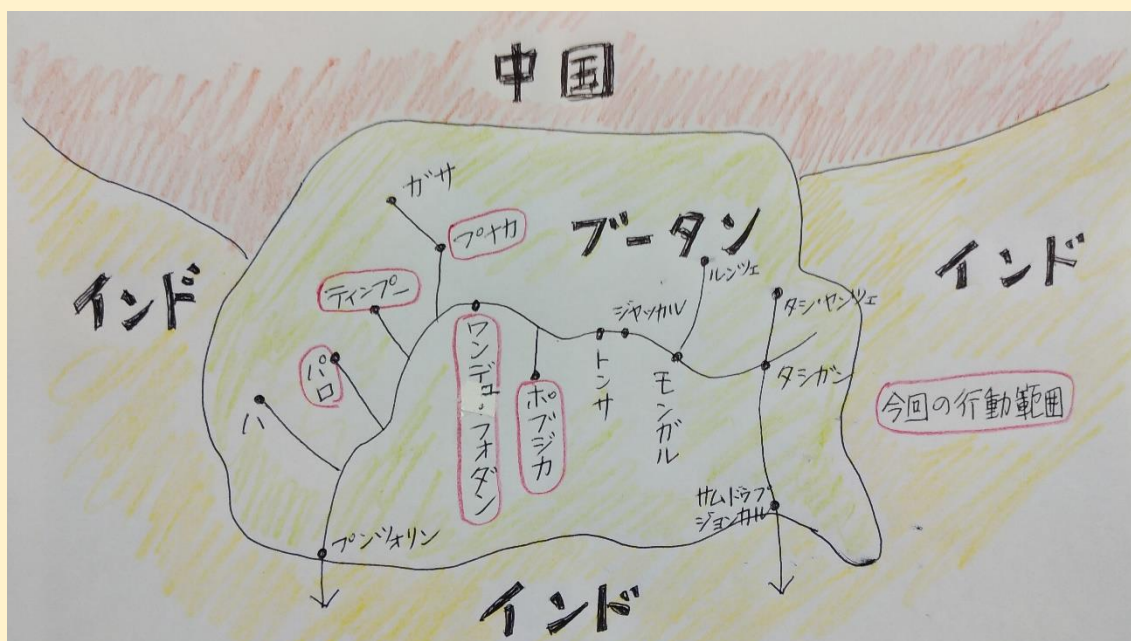 中国
ガサ
プナカ
ブータン
インド
インド
ルンツェ
ティンプー
タシ・ヤンツェ
ジャッカル
パロ
ワンデュ・フォダン
ポブジカ
トンサ
モンガル
タシガン
今回の行動範囲
ハ
サムドゥプ
ジョンカル
プンツォリン
インド